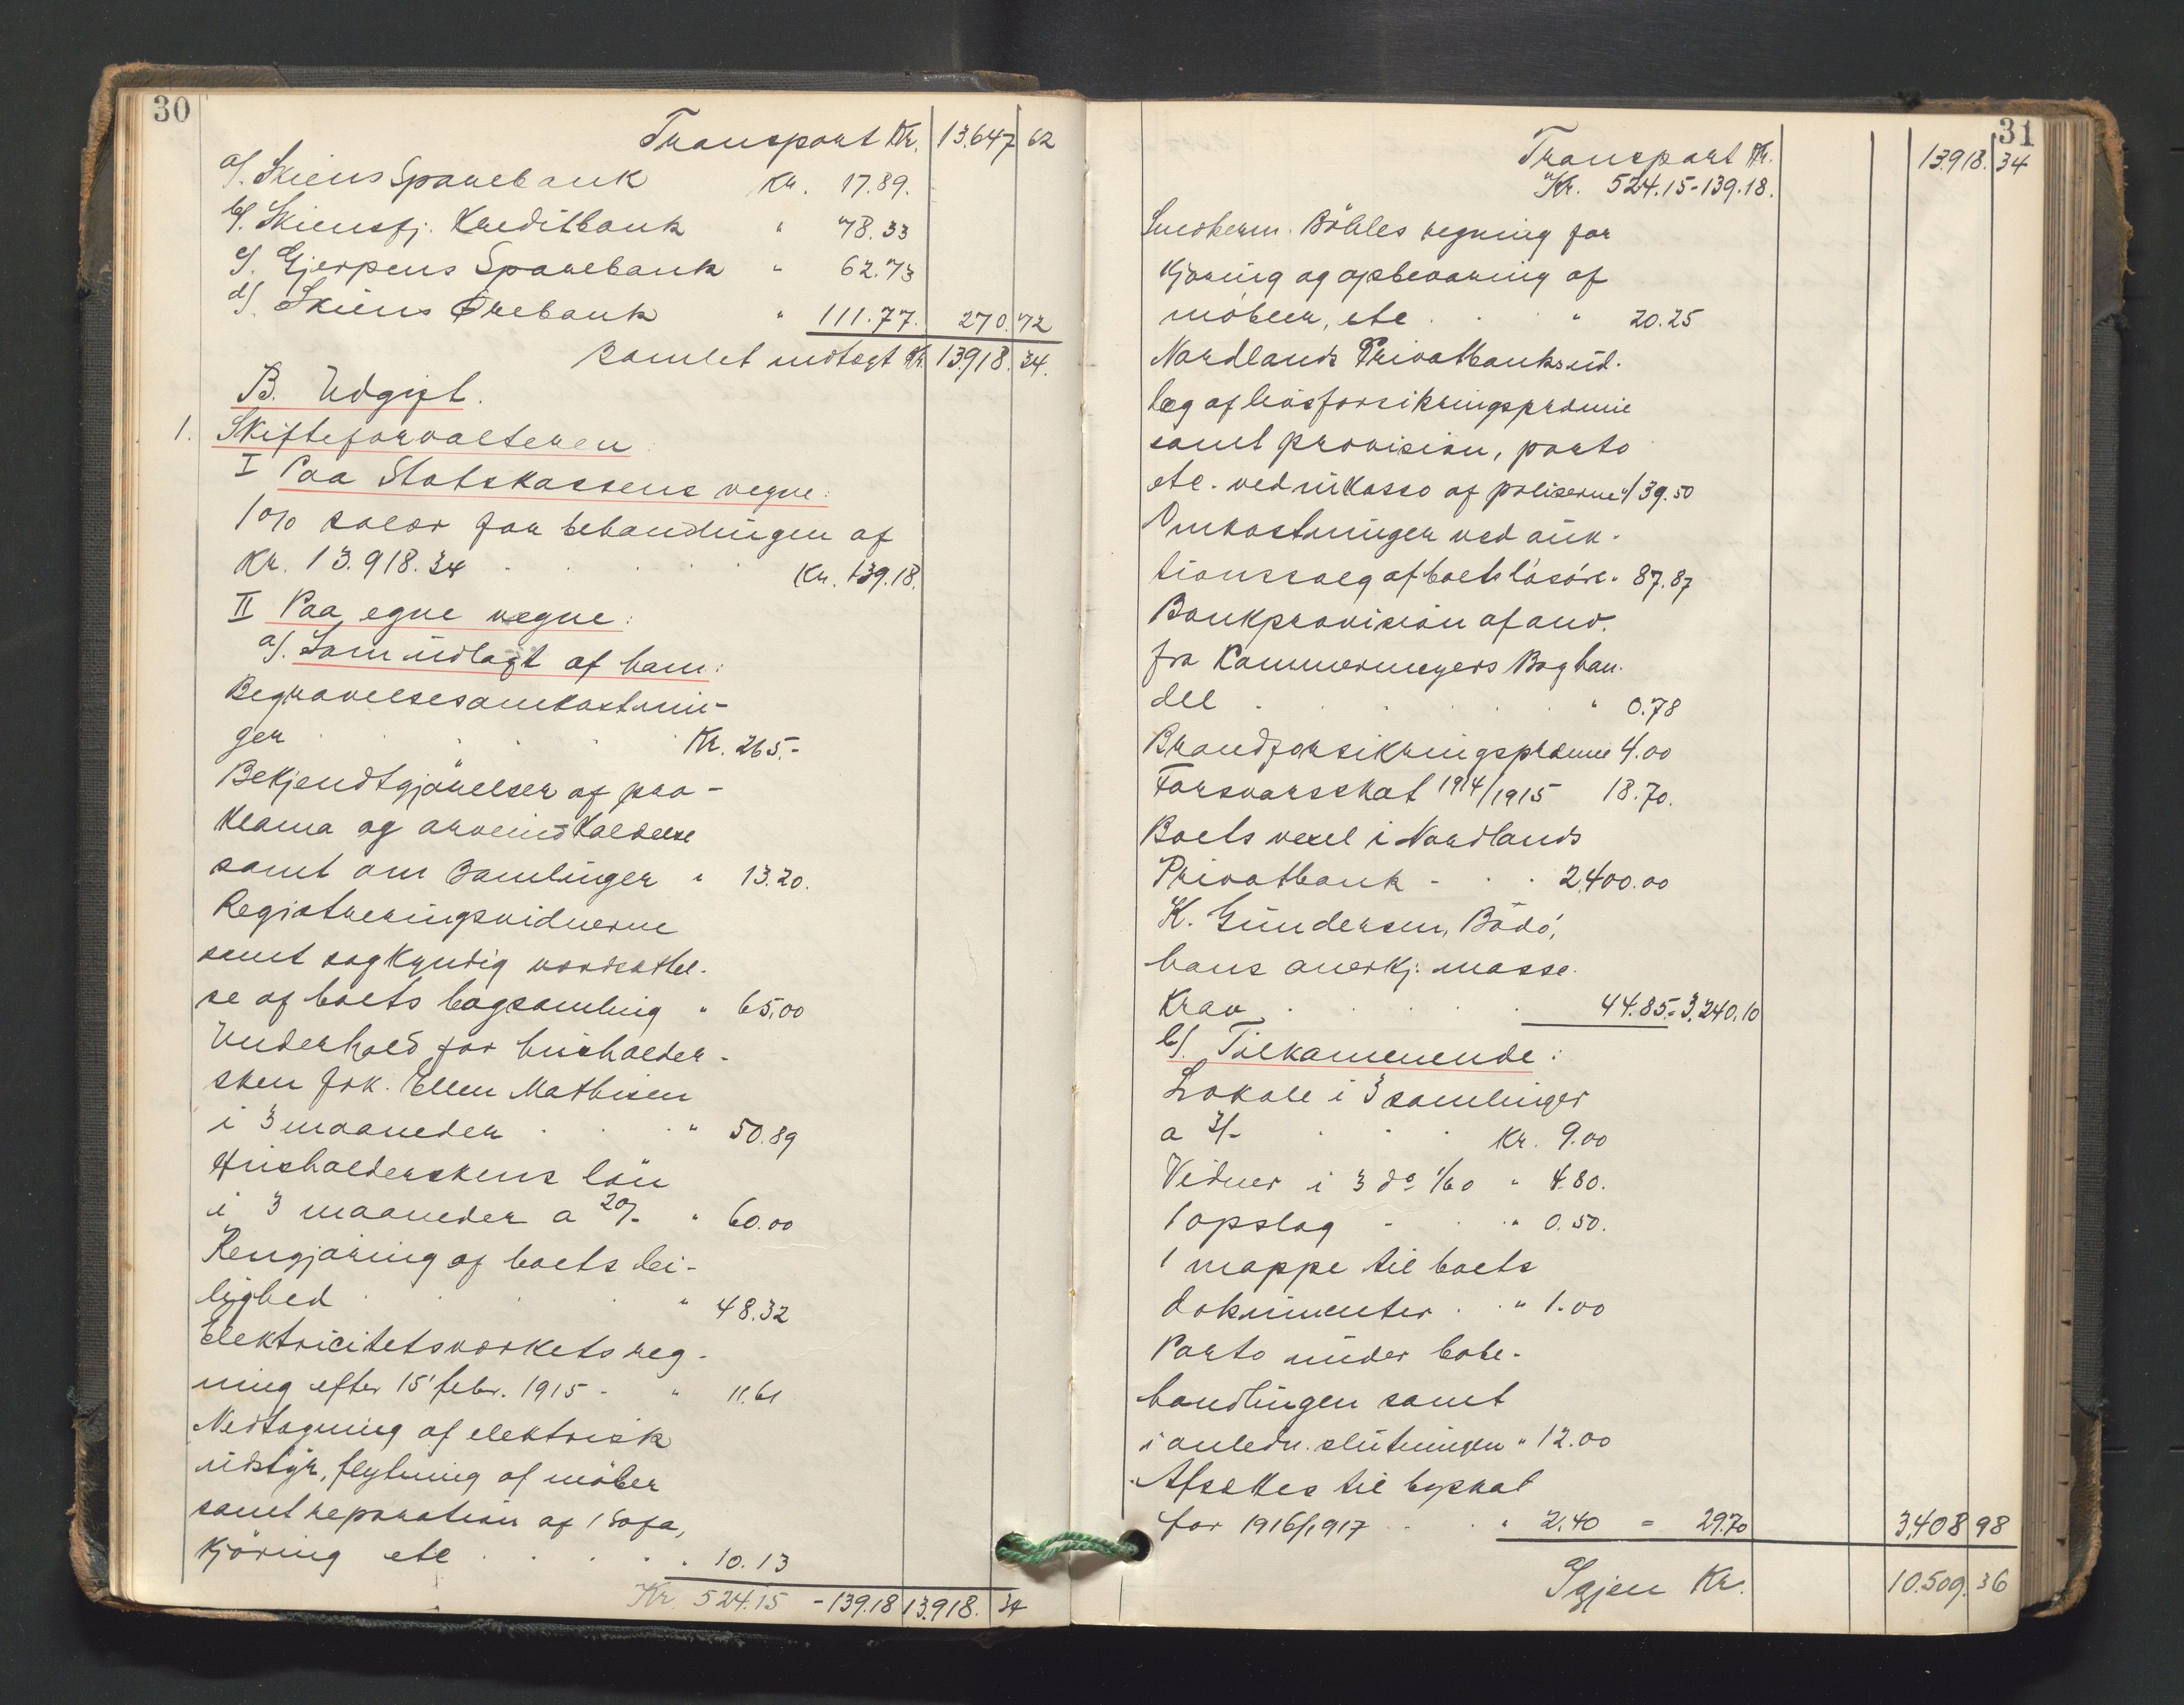 30
Transport Kr. 13.647 62
a/. Skiens Sparebank Kr. 17.89.
b/. Skiensfj. Kreditbank " 78.33
c/. Gjerpens Sparebank " 62.73
d/. Skiens Ørebank " 111.77. 270.72
Samlet indtægt Kr. 13918.34.
B. Udgift.
1. Skifteforvalteren:
I Paa Statskassens vegne:
1% salær for behandlingen af
Kr. 13.918.34 Kr. 139.18.
II Paa egne vegne:
a/. Som udlagt af ham:
Begravelsesomkostnin-
ger Kr. 265.-
Bekjendtgjörelser af pro-
klama og arveindkaldelse
samt om Samlinger " 13.20.
Registreringsvidnerne
samt sagkyndig værdsættel-
se af boets bogsamling " 65,00
Underhold for husholder-
sken frk. Ellen Mathisen
i 3 maaneder " 50.89
Husholderskens lön
i 3 maaneder a 20/- " 60.00
Rengjöring af boets lei-
lighed " 48.32
Elektricitetsværkets reg-
ning efter 15' febr. 1915 - " 11.61
Nedtagning af elektrisk
udstyr, flytning af möbler
samt reparation af 1 Sofa,
kjöring etc " 10.13
Kr. 524.15 - 139.18 13.918. 34
31
Transport Kr. 13.918. 34
Kr. 524.15 - 139.18.
Snedkerm. Böhles regning for
kjöring og opbevaring af
möbler, etc " 20.25
Nordlands Privatbanks ud-
læg af livsforsikringspræmie
samt provision, porto
etc. ved inkasso af poliserne " 139.50
Omkostninger ved auk-
tionssalg af boets lösöre " 87.87
Bankprovision af anv.
fra Cammermeyers Boghan-
del " 0.78
Brandforsikringspræmie 4.00
Forsvarsskat 1914/1915 18.70.
Boets vexel i Nordlands
Privatbank - 2,400.00
K. Gundersen, Bodö,
hans anerkj. masse-
krav 44.85 = 3.240.10
b/. Tilkommende:
Lokale i 3 samlinger
a 3/- Kr. 9.00
Vidner i 3 do 1/60 " 4.80.
1 opslag - " 0.50.
1 mappe til boets
dokumenter " 1.00
Porto under bobe-
handlingen samt
i anledn. slutningen " 12.00
Afsættes til byskat
for 1916/1917 " 2.40 = 29.70 3,408 98
Igjen Kr. 10.509.36